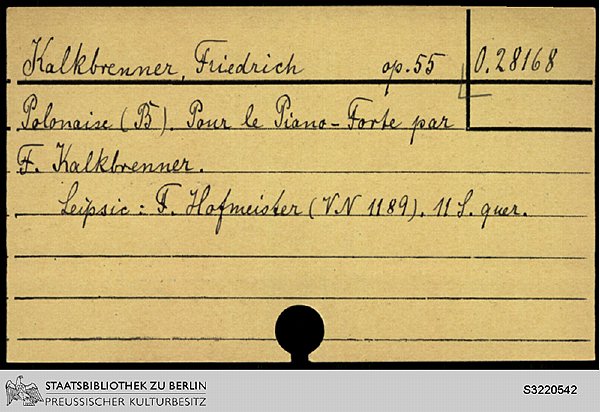 Kalkbrenner, Friedrich op. 55 O. 28168
Polonaise (B). Pour le Piano-Forte par
F. Kalkbrenner.
Leipsic: F. Hofmeister (VN 1189). 11 S. quer.
STAATSBIBLIOTHEK ZU BERLIN
PREUSSISCHER KULTURBESITZ
S3220542